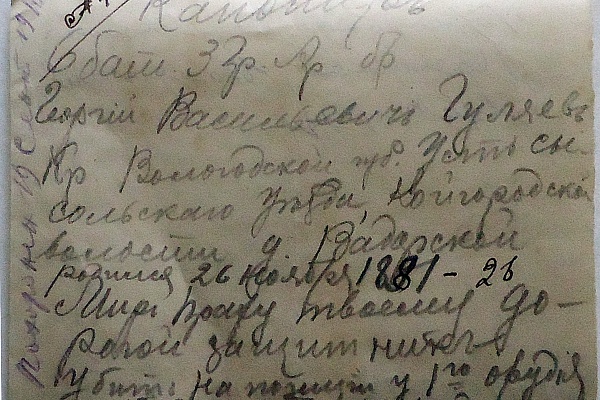 6 бат 3 гр Ар бр
Георгий Васильевичъ Гуляевъ
Кр Вологодской губ. Усть сы-
сольскаго уѣзда, Койгородской
волости д. Вадарской
родился 26 ноября 1881 - 26
Миръ праху твоему до-
рогой защитникъ
Убитъ на позиции у 1го орудія